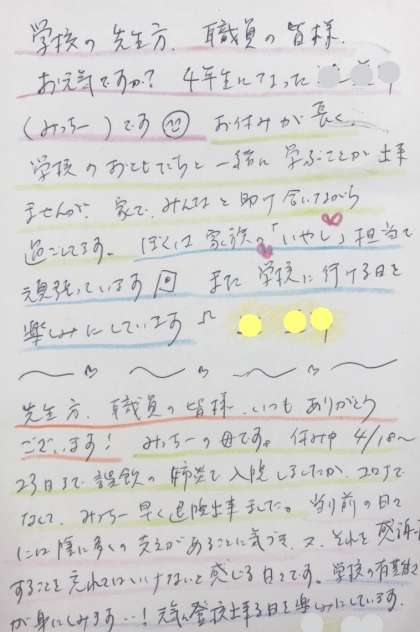 学校の先生方、職員の皆様、
お元気ですか? 4年生になった
(みっちー)です お休みが長く、
学校のおともだちと一緒に学ぶことが出来
ませんが、家で、みんなと助け合いながら
過ごしてます。ぼくは家族の「いやし」担当で
頑張っています また学校に行ける日を
楽しみにしています
先生方、職員の皆様、いつもありがとう
ございます! みっちーの母です。休み中 4/18〜
23日まで誤飲の肺炎で入院しましたが、コロナで
なくて、みっちー早く退院出来ました。当り前の日々
には陰に多くの支えがあることに気づき、又、それを感謝
することを忘れてはいけないと感じる日々です。学校の有難さ
が身にしみます…! 元気に登校出来る日を楽しみにしています。